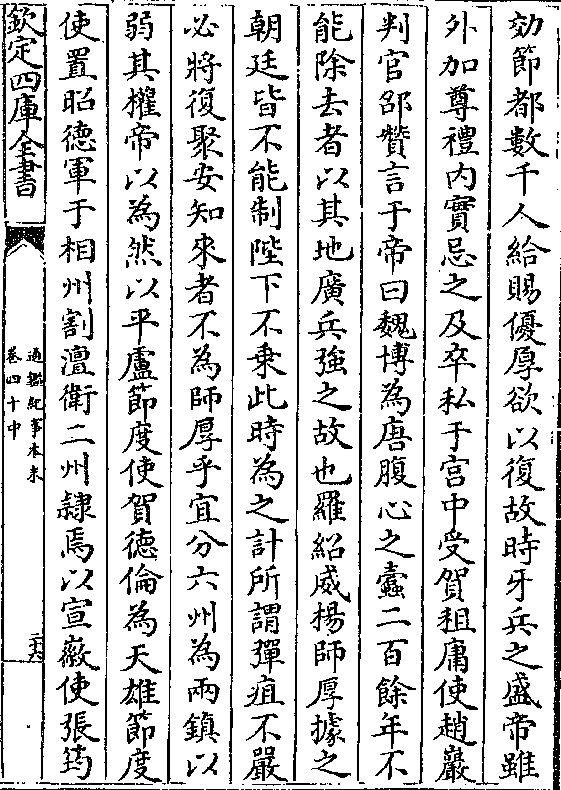 効節都數千人給賜優厚欲以復故時牙兵之盛帝雖
外加尊禮内實忌之及卒私于宫中受賀租庸使趙巖
判官邵贊言于帝曰魏博為唐腹心之蠧二百餘年不
能除去者以其地廣兵強之故也羅紹威楊師厚據之
朝廷皆不能制陛下不乗此時為之計所謂彈疽不嚴
必將復聚安知來者不為師厚乎宜分六州為兩鎮以
弱其權帝以為然以平盧節度使賀德倫為天雄節度
使置昭德軍于相州割澶衛二州𨽻焉以宣徽使張筠
欽定四庫全書
通鑑紀事本末
卷四十中
二十六